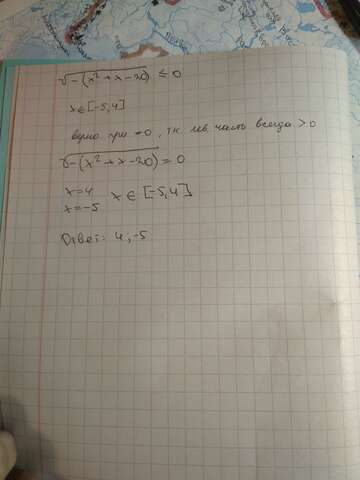 √-(x²+x-20) ≤ 0
x∈[-5,4]
верно при =0, т.к. лев. часть всегда >0
√-(x²+x-20) = 0
x=4
x=-5 x∈[-5,4]
Ответ: 4;-5